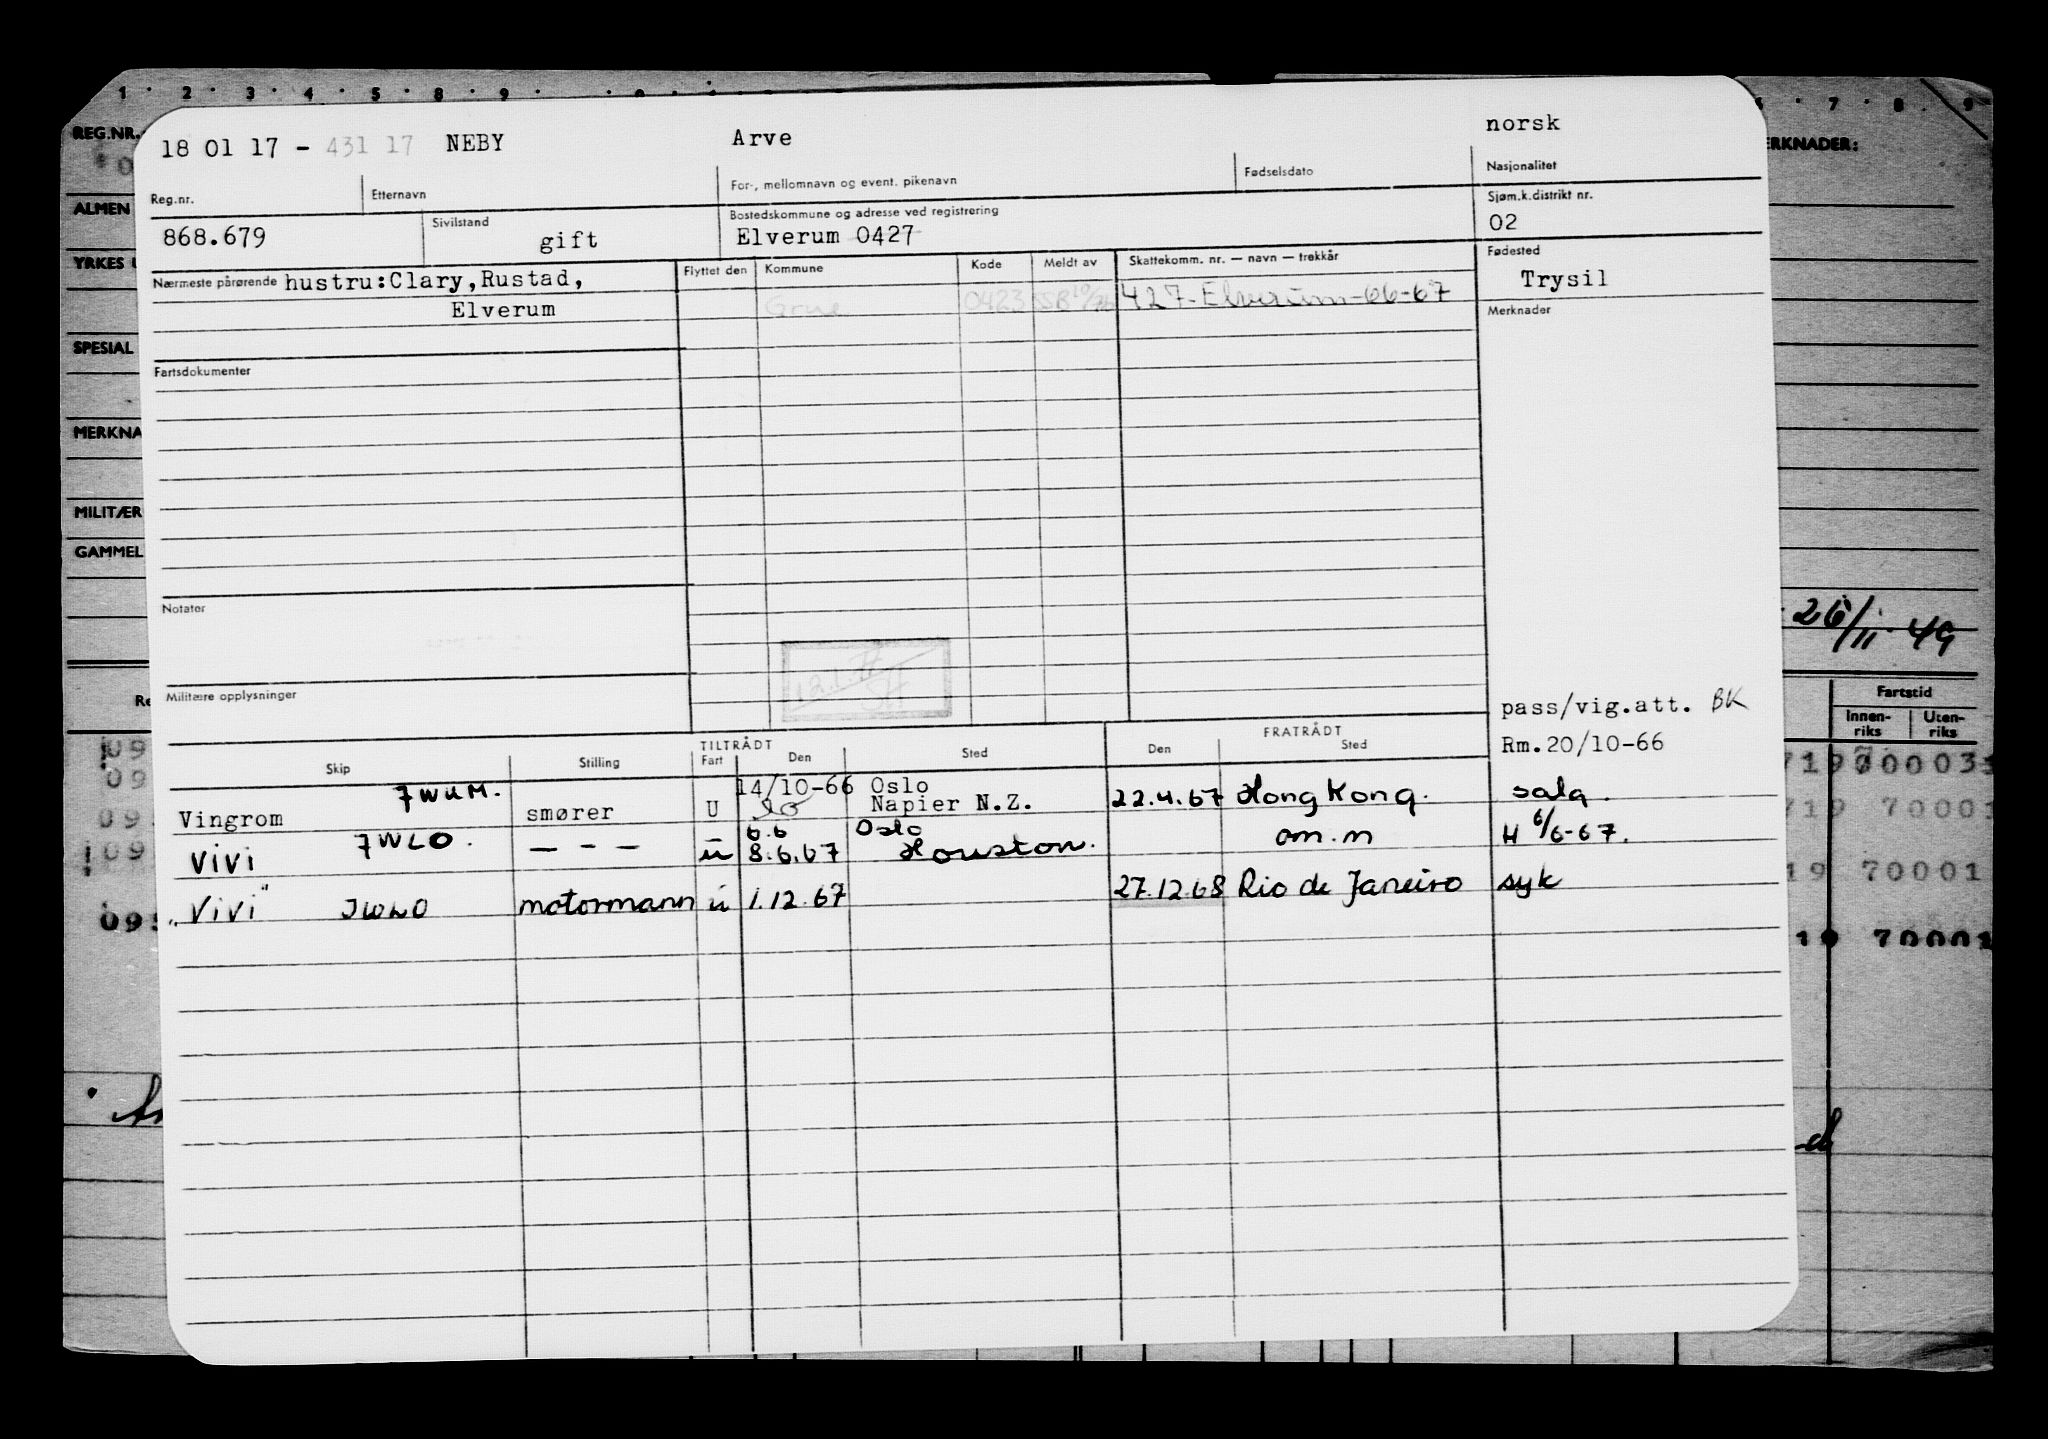 1 · 2 · 3 · 4 · 5 · 8 · 9 · 7 · 8 · 9
REG.NR. ERKNADER:
18 01 17 - 431 17 NEBY Arve norsk
Reg.nr. Etternavn For-, mellomnavn og event. pikenavn Fødselsdato Nasjonalitet
868.679 Sivilstand gift Bostedskommune og adresse ved registrering Elverum 0427 Sjøm.k.distrikt nr. 02
ALMEN
YRKES
SPESIAL
MERKNA
MILITÆR
GAMMEL
Nærmeste pårørende hustru:Clary,Rustad,
Elverum
Flyttet den Kommune Kode Meldt av Skattekomm. nr. — navn — trekkår Fødested
Grue 0423 SSB 427-Elverum-66-67 Trysil
Merknader
Fartsdokumenter
Notater
Militære opplysninger
26/11 49
pass/vig.att. BK
Rm.20/10-66
Fartstid
Innen-riks Uten-riks
TILTRÅDT FRATRÅDT
Skip Stilling Fart Den Sted Den Sted
14/10-66 Oslo
Vingrom JWUM. smører U Napier N.Z. 22.4.67 Hong Kong. salg.
6.6 Oslo
ViVi JWLO. — - — u 8.6.67 Houston. om.m H 6/6-67.
"ViVi" JWLO motormann u 1.12.67 27.12.68 Rio de Janeiro syk